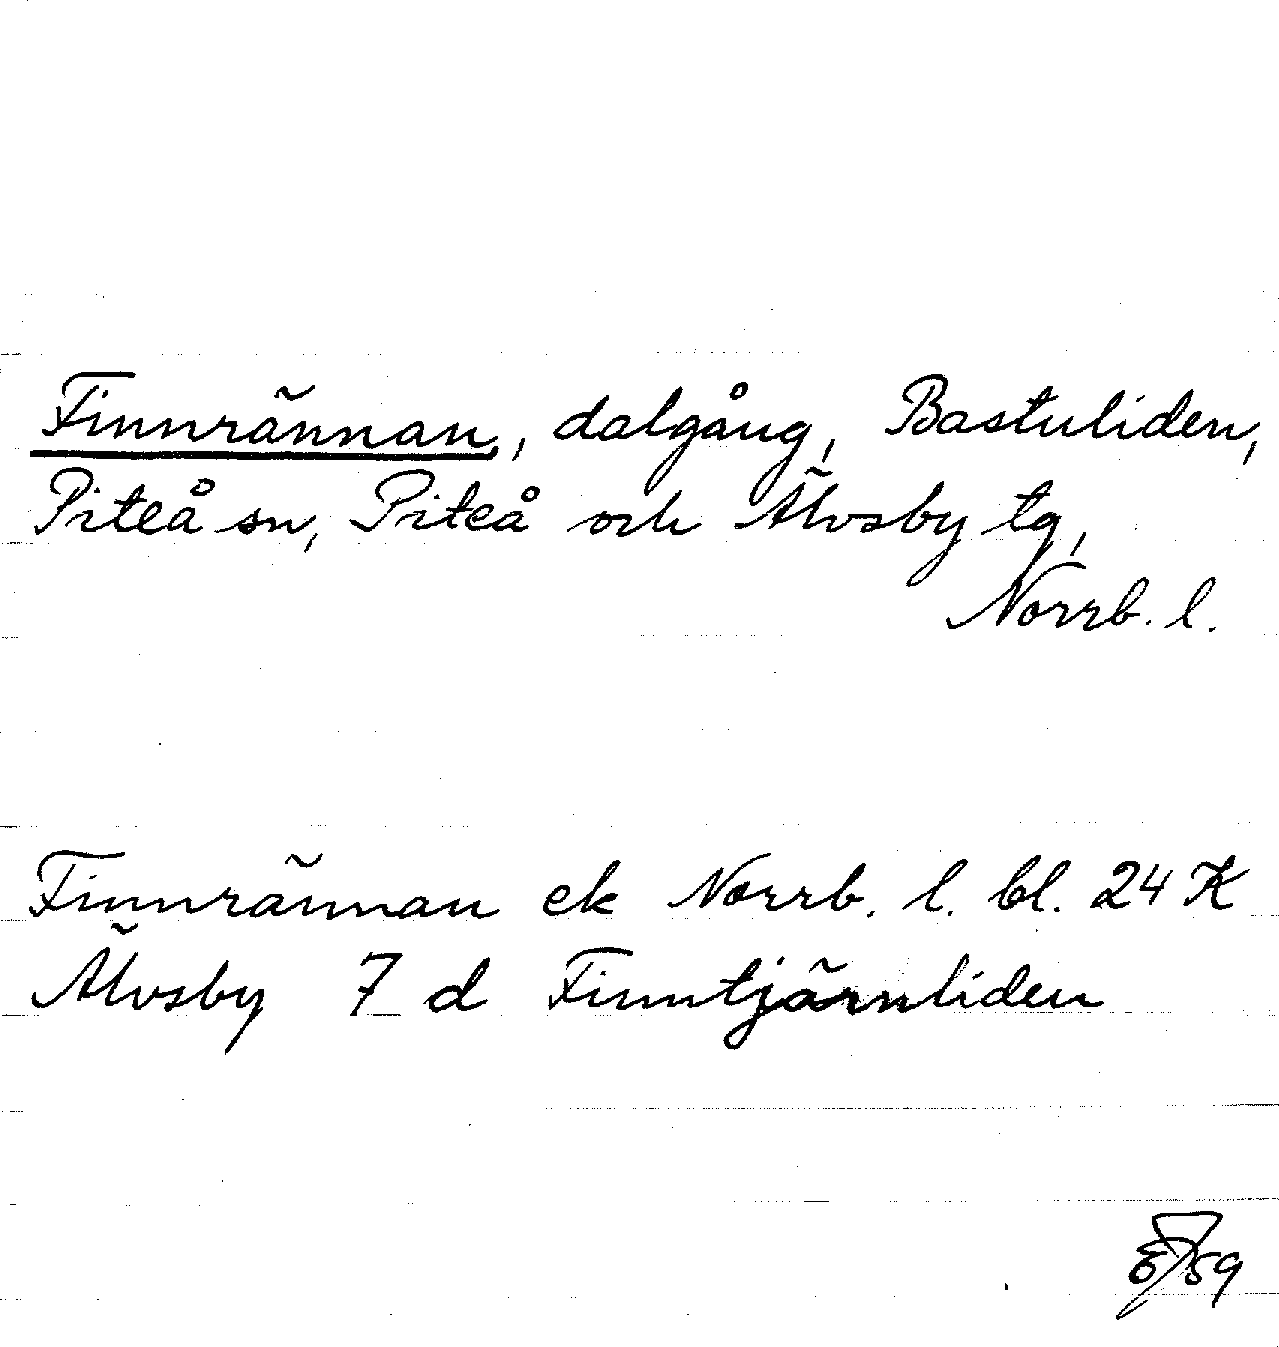 Finnrännan, dalgång, Bastuliden,
Piteå sn, Piteå och Älvsby tg,
Norrb. l.
Finnrännan ek Norrb. l. bl. 24 K
Älvsby 7 d Finntjärnliden
59